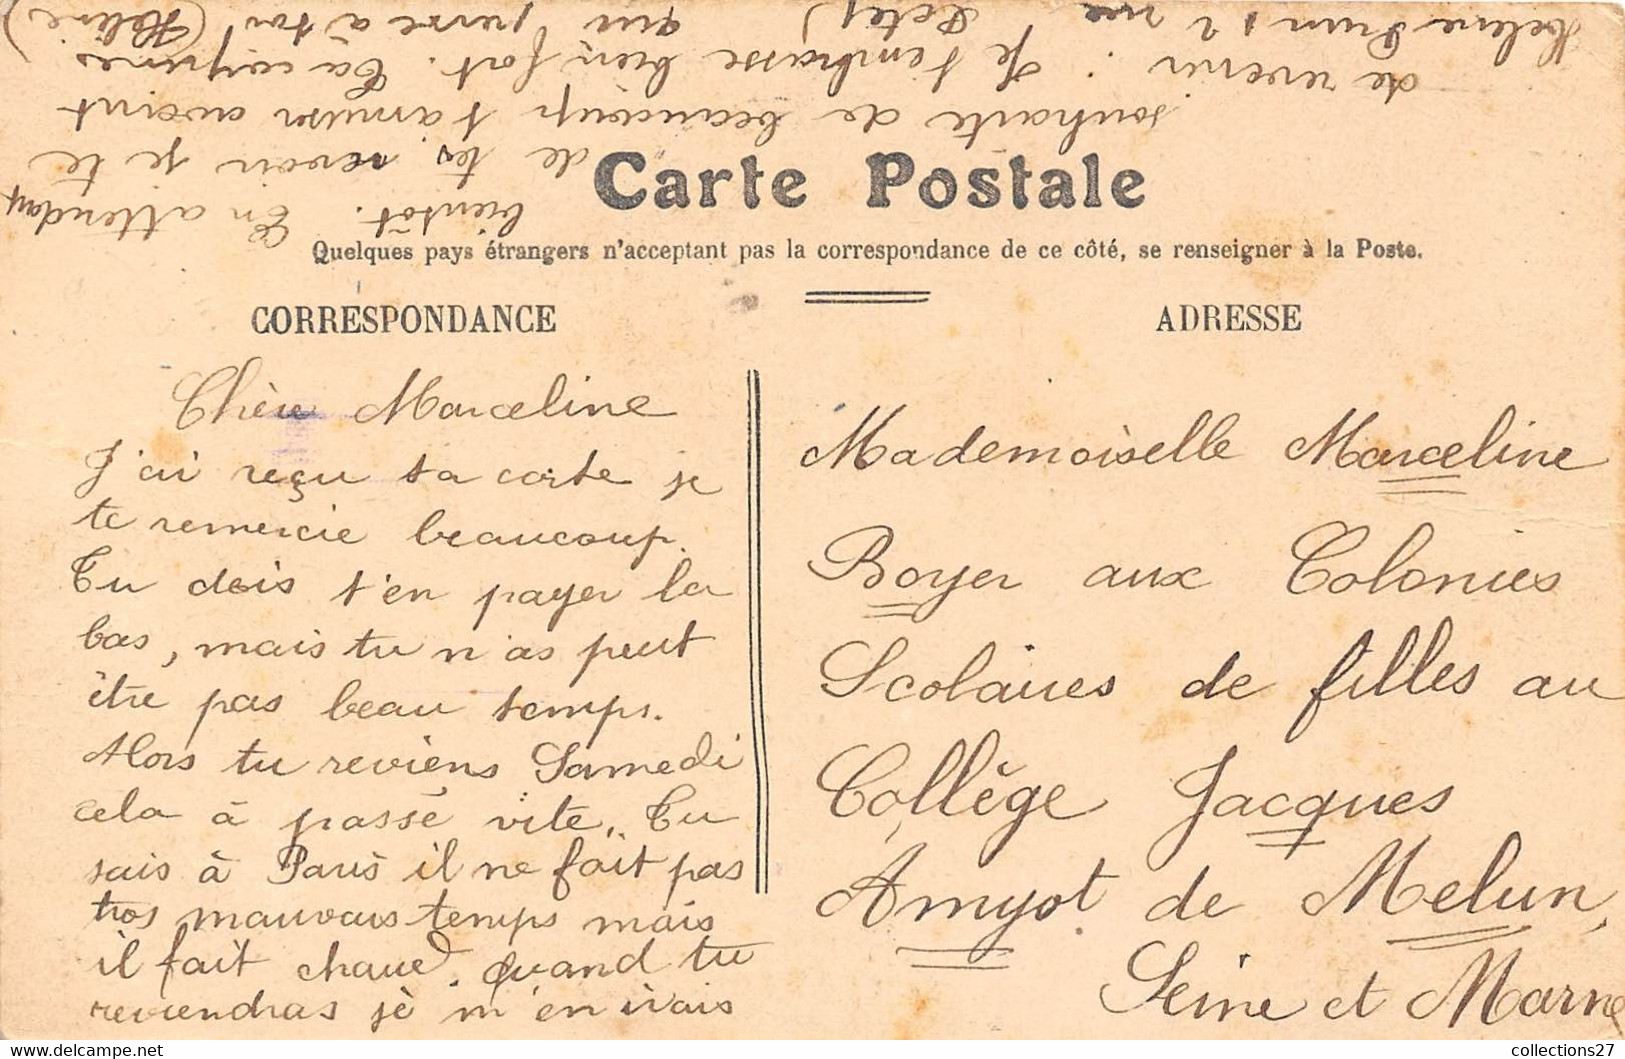 Carte Postale
Quelques pays étrangers n'acceptant pas la correspondance de ce côté, se renseigner à la Poste.
CORRESPONDANCE
Chère Marceline
J'ai reçu ta carte je
te remercie beaucoup.
Tu dois t'en payer la
bas, mais tu n'as peut
être pas beau temps.
Alors tu reviens Samedi
cela à passé vite,, Tu
sais à Paris il ne fait pas
très mauvais temps mais
il fait chaud. Quand tu
reviendras jè m'en irais
bientôt. En attendant
de te revoir je te
souhaite de beaucoup t'amuser avant
de revenir. Je t'embrasse bien fort. Ta copine
Helene 12 rue qui pense à toi (Helène)
ADRESSE
Mademoiselle Marceline
Boyer aux Colonies
Scolaires de filles au
Collège Jacques
Amyot de Melun,
Seine et Marne
collections27